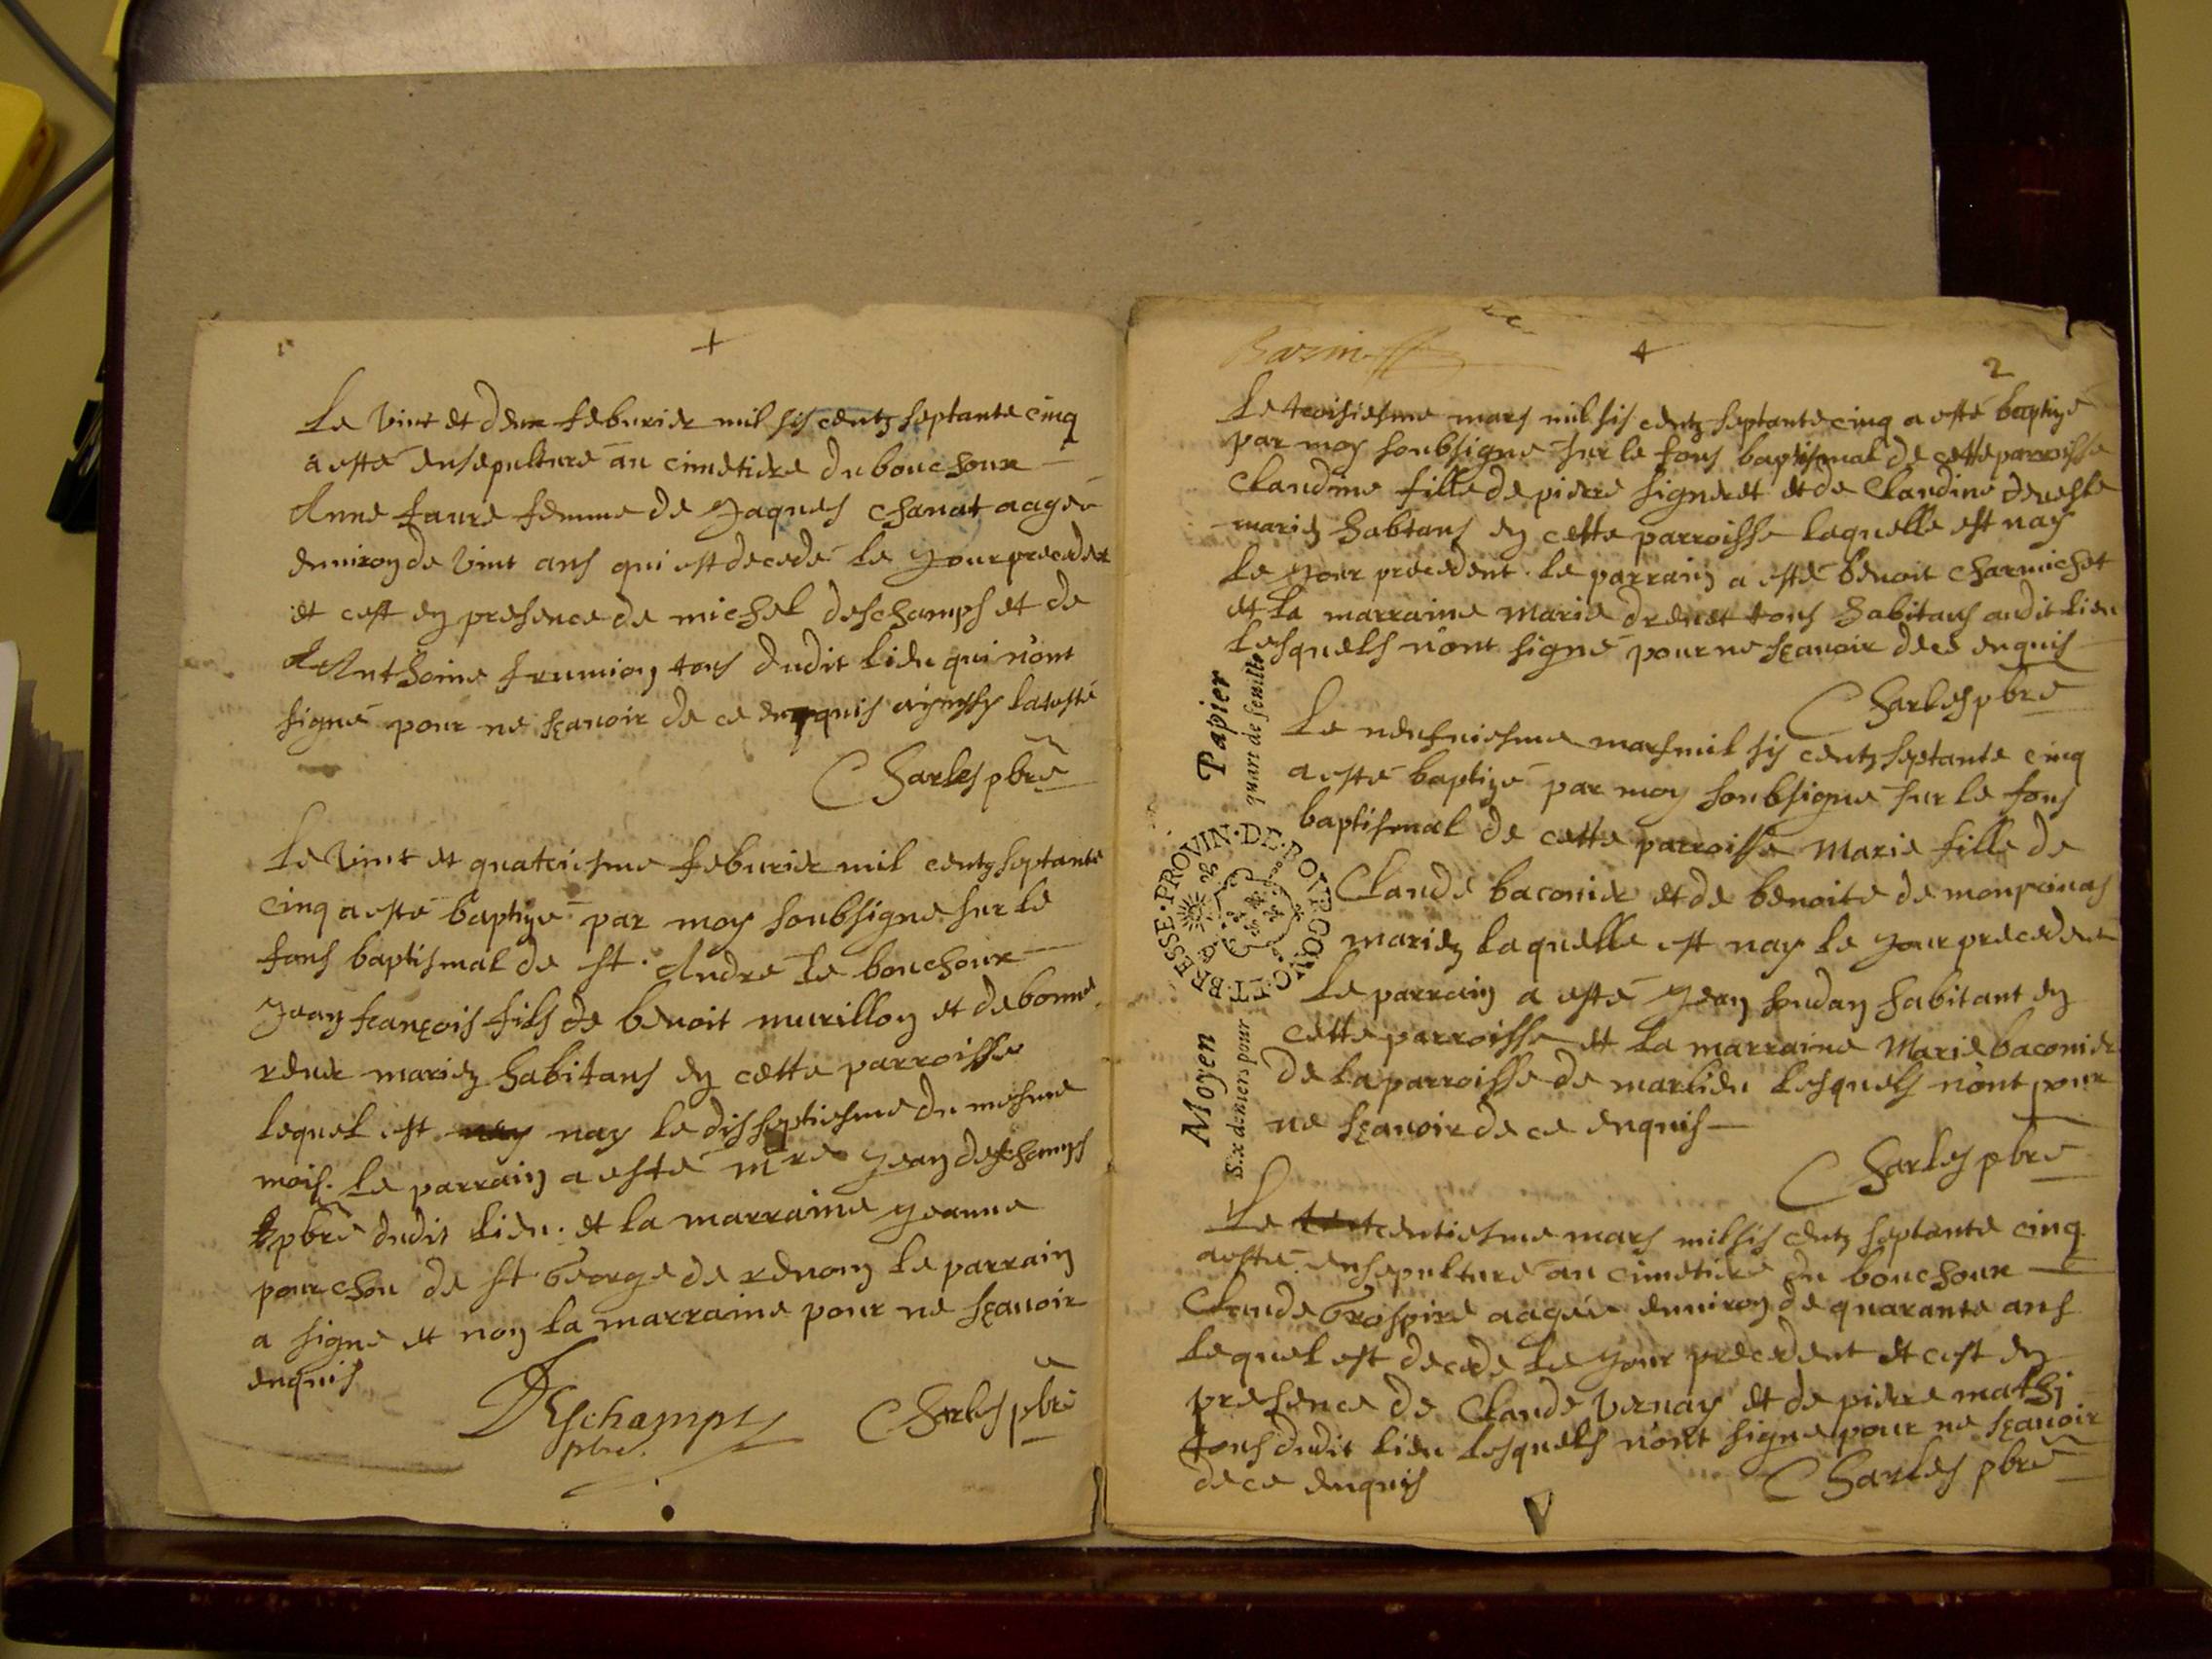 +
Le vint et deux feburier mil sis centz septante cinq
a esté ensepulturé au cimetiere du bouchoux
Anne faure femme de Jaques chanat aagée
enuiron de vint ans qui est decedé le jour preceder
et cest en presence de michel deschamps et de
Anthoine frumion tous dudit lieu qui n'ont
signé pour ne sçauoir de ce enquis aynssy l'atesté
Charles pbre
Le vint et quatriesme feburier mil centz septante
cinq a esté baptizé par moy soubsigne sur le
fons baptismal de st. Andre le bouchoux
Jean françois fils de benoit murillon et de bonne
rener mariez habitans en cette parroisse
lequel est nay nay le dis septiesme du mesme
mois. Le parrain a esté mre Jean deschamps
pbre dudit lieu. et la marraine Jeanne
pourchou de st George de renom le parrain
a signé et non la marraine pour ne sçauoir
enquis
Deschamps Charles pbre
pbre.
+ 2
Le troisiesme mars mil sis centz septante cinq a esté baptizé
par moy soubsigne sur le fons baptismal de cette parroisse
Claudine fille de pierre signeret et de Claudine deneste
mariez habtans en cette parroisse laquelle est nay
le jour precedent. le parrain a esté benoit charmichet
et la marraine Marie drenet tous habitans audit lieu
Lesquels n'ont signé pour ne sçauoir de ce enquis
Charles pbre
Le neufuiesme mars mil sis centz septante cinq
a esté baptizé par moy soubsigne sur le fons
baptismal de cette parroisse Marie fille de
Claude baconier et de benoite de monpinas
mariez laquelle est nay le jour precedent
Le parrain a esté Jean soudan habitant en
cette parroisse et la marraine Marie baconier
de la parroisse de marlieu lesquels n'ont pour
ne sçauoir de ce enquis
Charles pbre
Moyen Papier
Six deniers pour quart de feuille
BRESSE·PROVIN·DE·BOVRGON·ET
Le trentiesme mars mil sis centz septante cinq
a esté ensepulturé au cimetiere du bouchoux
Claude Grospire aagée enuiron de quarante ans
Lequel est decede le jour precedent et cest en
presence de Claude vernay et de pierre mathj
tous dudit lieu lesquels n'ont signe pour ne sçauoir
de ce enquis Charles pbre